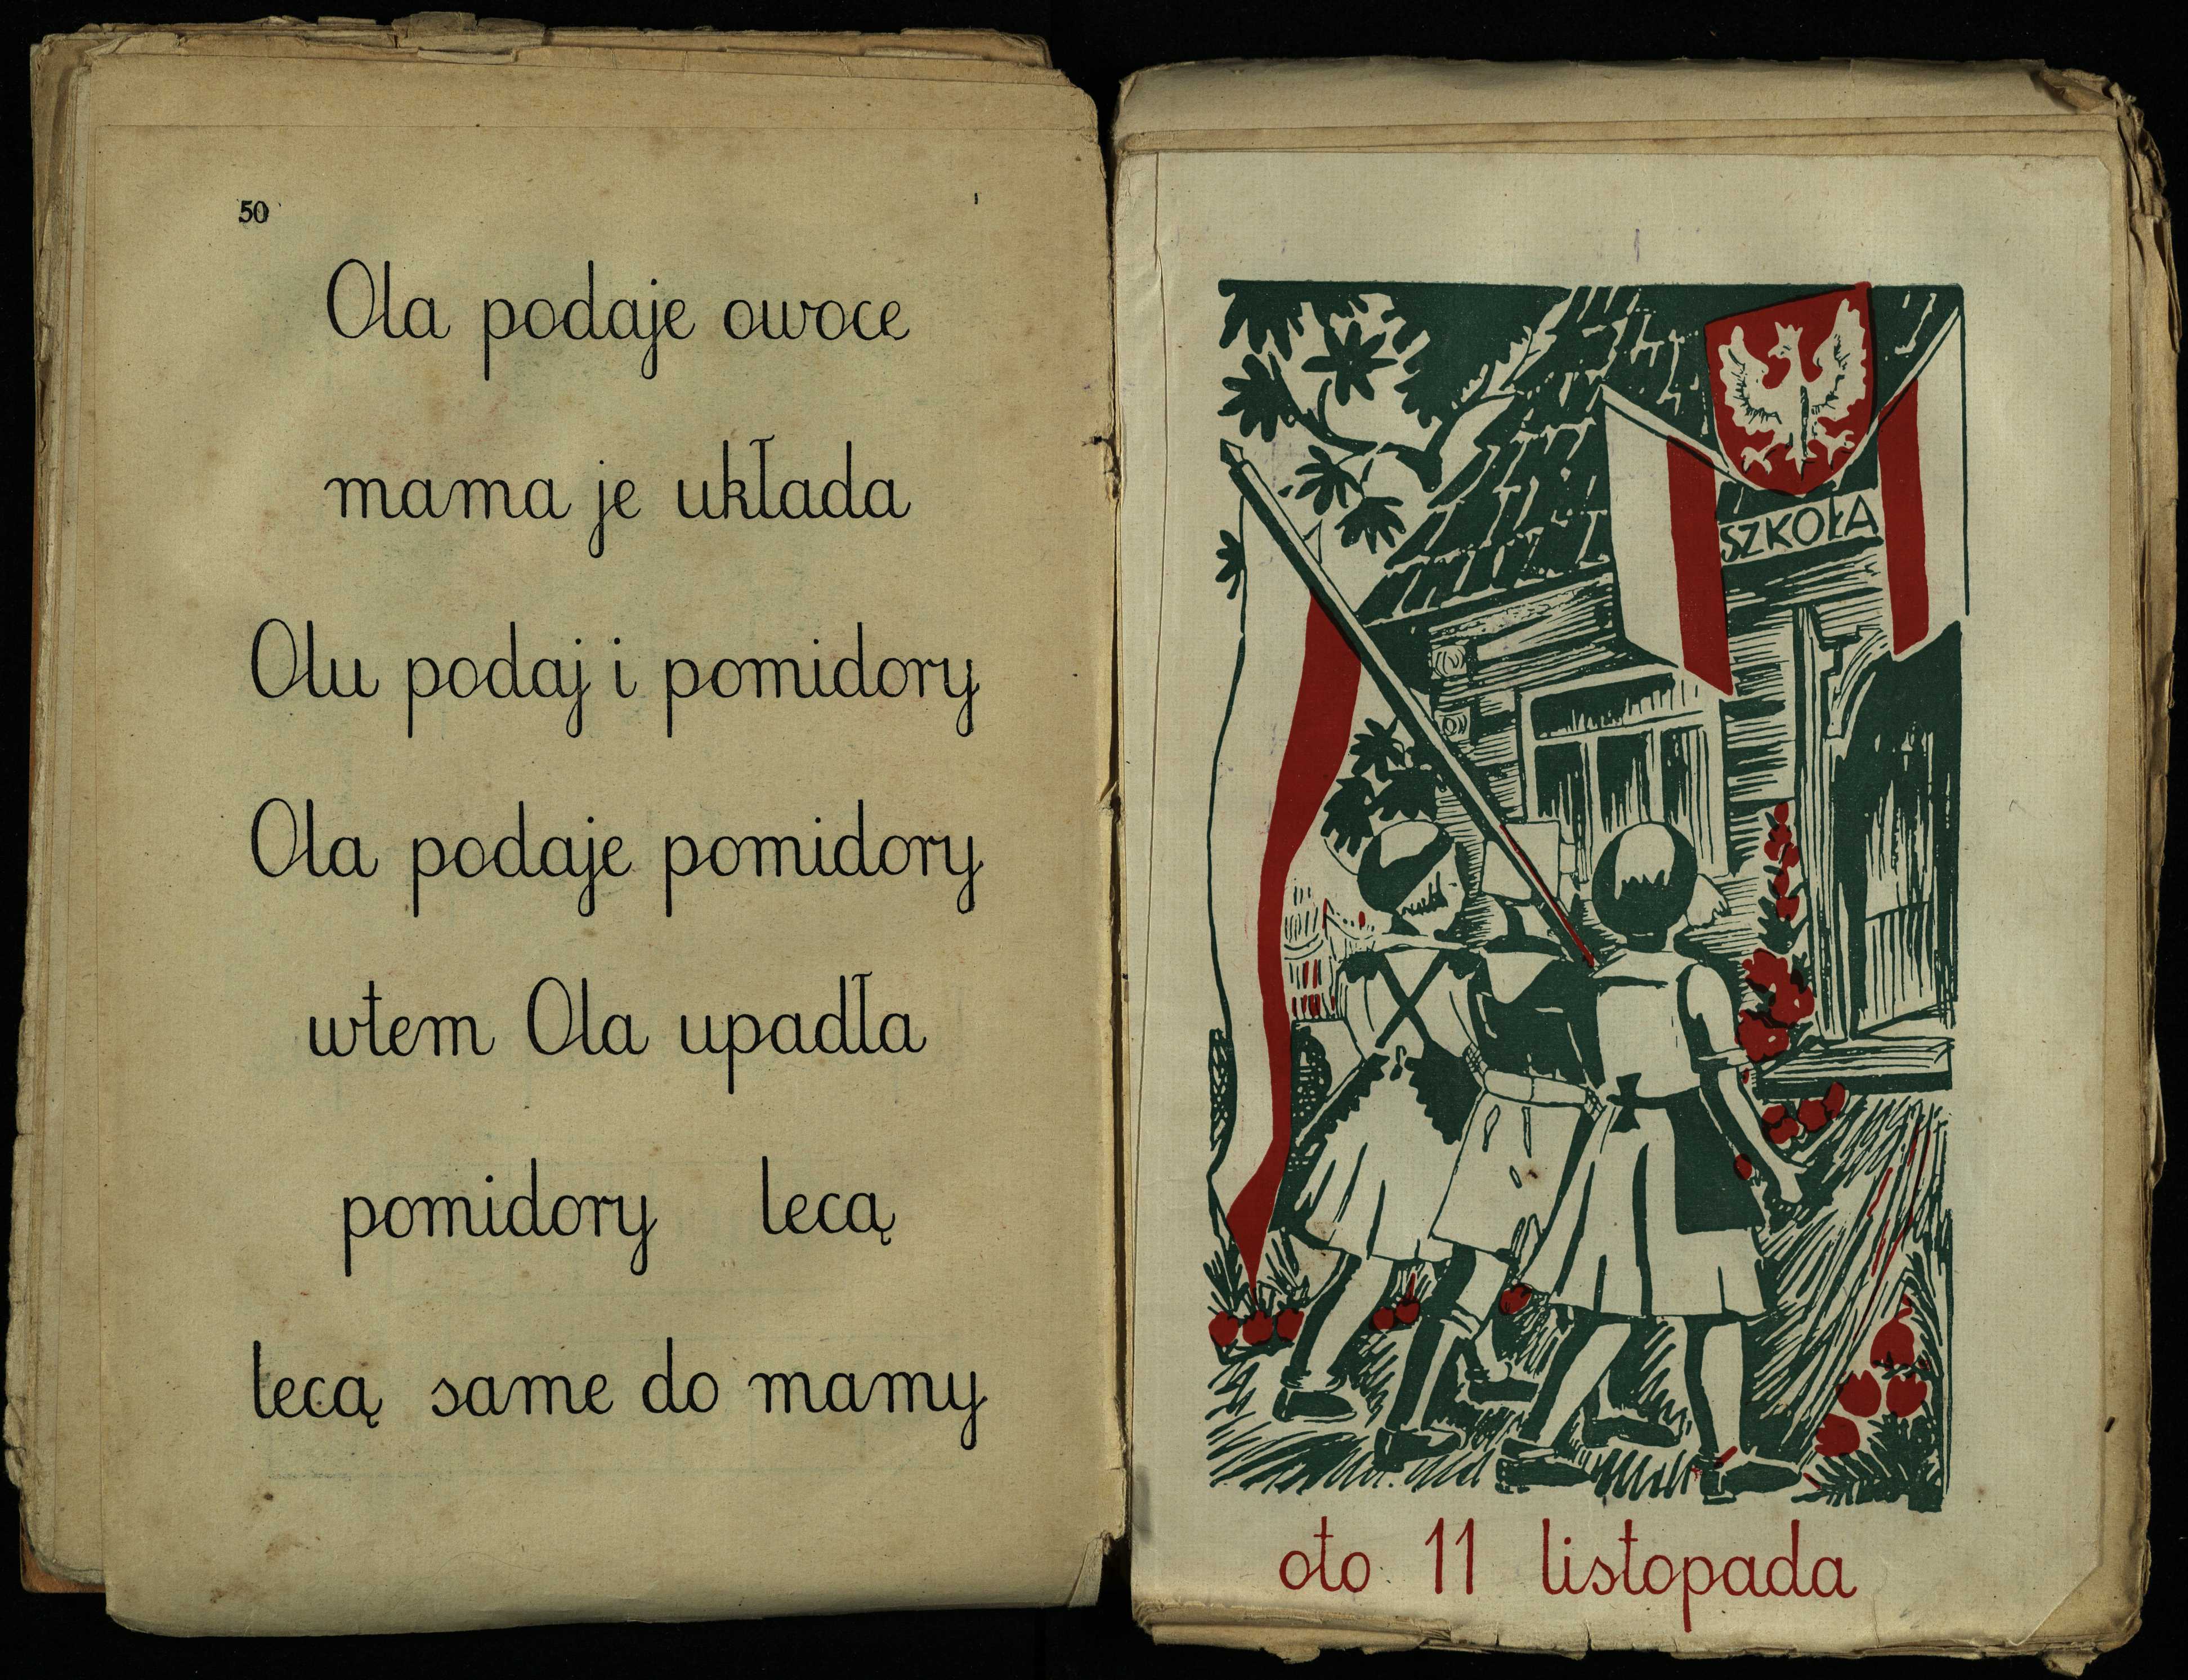 50
Ola podaje owoce
mama je układa
Olu podaj i pomidory
Ola podaje pomidory
wtem Ola upadła
pomidory lecą
lecą same do mamy
SZKOŁA
oto 11 listopada